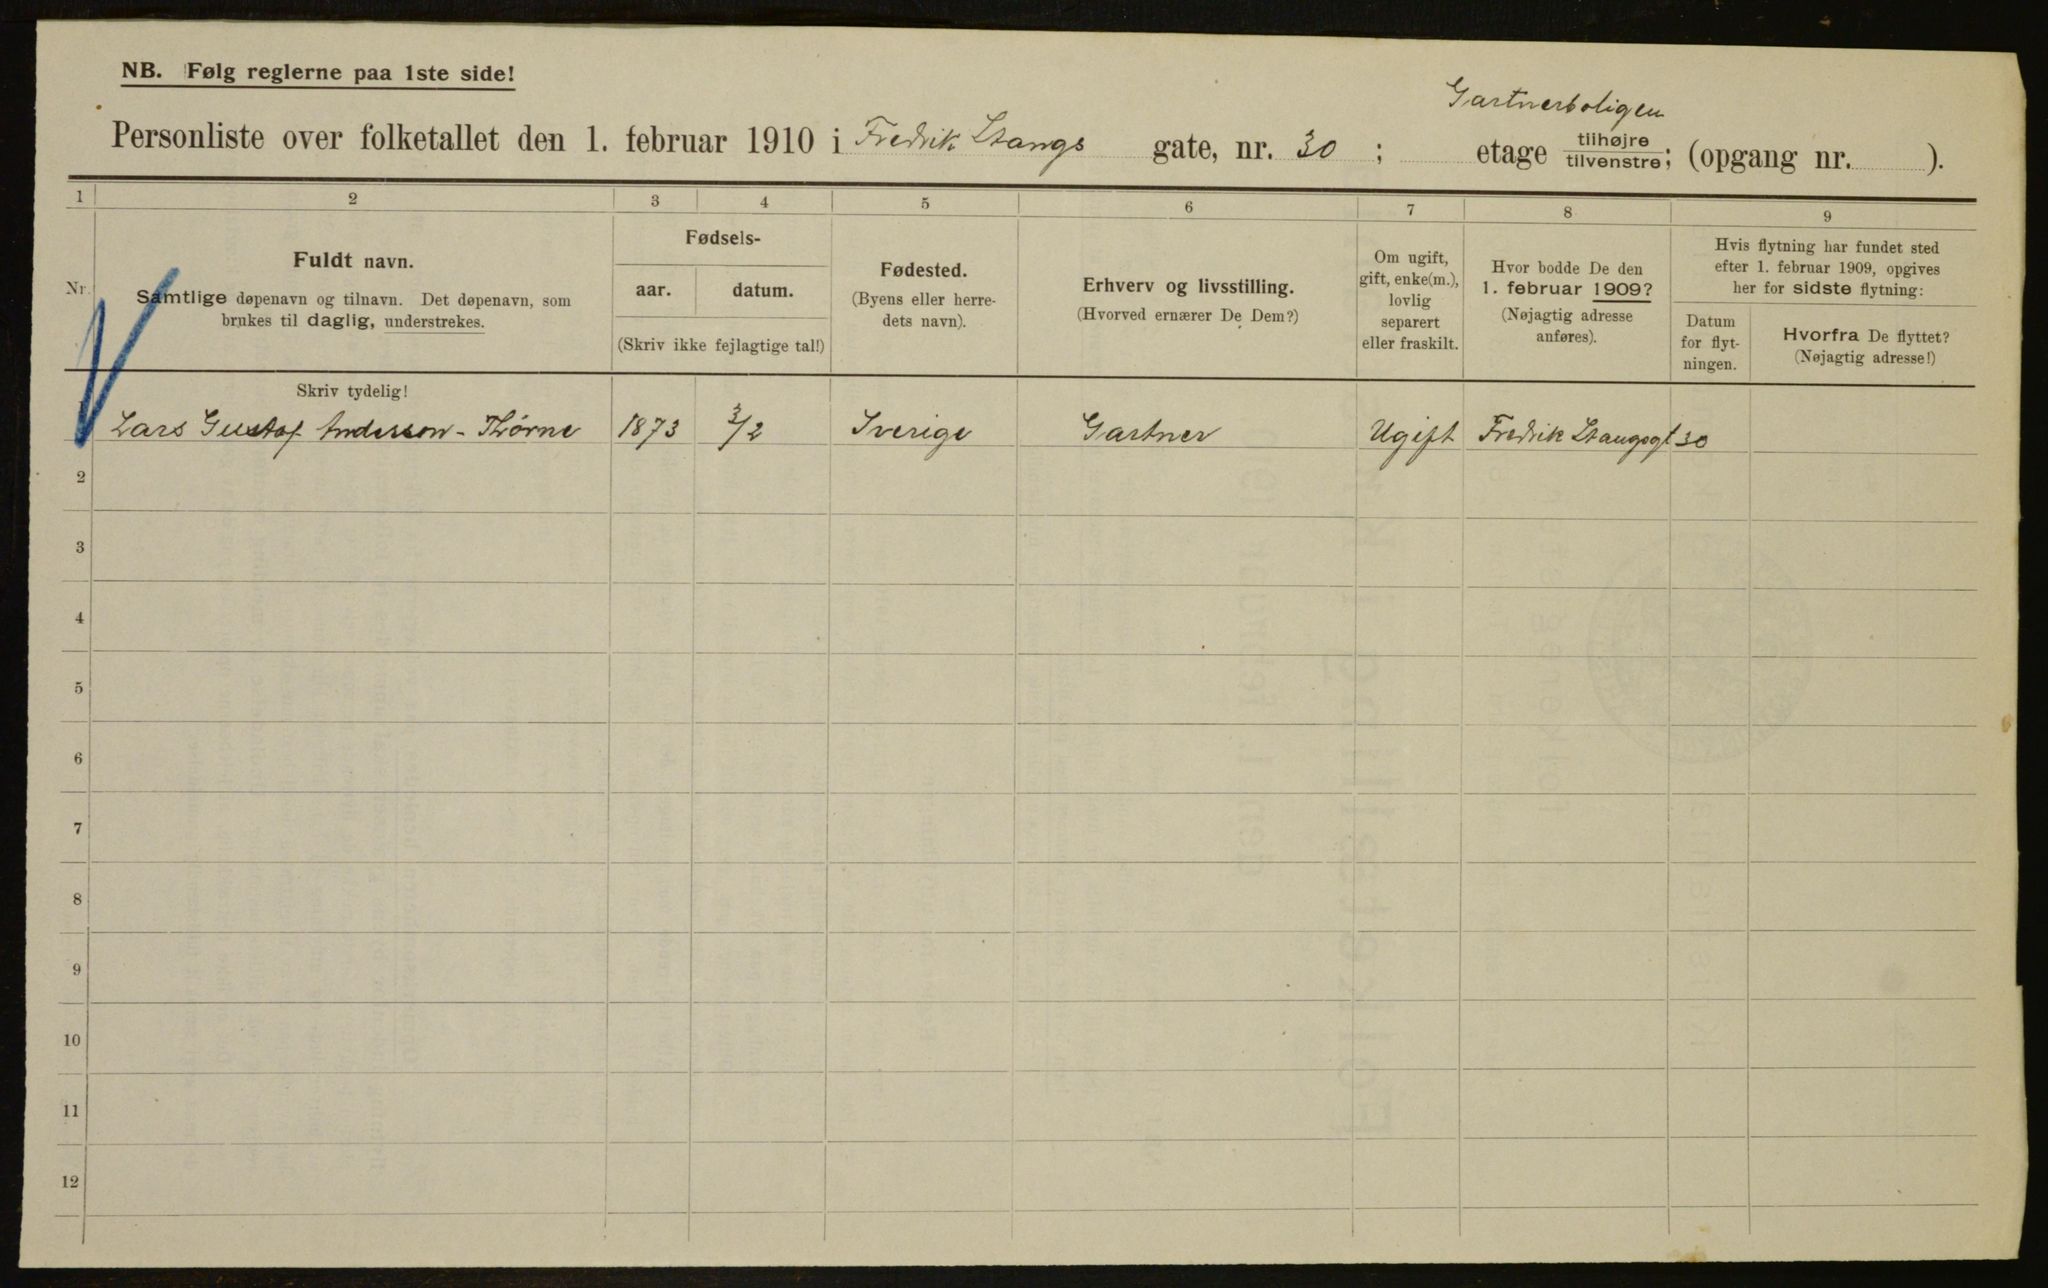 NB. Følg reglerne paa 1ste side!
Gartnerboligen
Personliste over folketallet den 1. februar 1910 i Fredrik Stangs gate, nr. 30 ; etage tilhøjre
tilvenstre; (opgang nr. ).
1 2 3 4 5 6 7 8 9
Nr.
Fuldt navn.
Samtlige døpenavn og tilnavn. Det døpenavn, som
brukes til daglig, understrekes.
Skriv tydelig!
Fødsels-
aar. datum.
(Skriv ikke fejlagtige tal!)
Fødested.
(Byens eller herre-
dets navn).
Erhverv og livsstilling.
(Hvorved ernærer De Dem?)
Om ugift,
gift, enke(m.),
lovlig
separert
eller fraskilt.
Hvor bodde De den
1. februar 1909?
(Nøjagtig adresse
anføres).
Hvis flytning har fundet sted
efter 1. februar 1909, opgives
her for sidste flytning:
Datum
for flyt-
ningen.
Hvorfra De flyttet?
(Nøjagtig adresse!)
Lars Gustaf Anderson - Thörne 1873 3/2 Sverige Gartner Ugift Fredrik Stangsgt 30
2
3
4
5
6
7
8
9
10
11
12